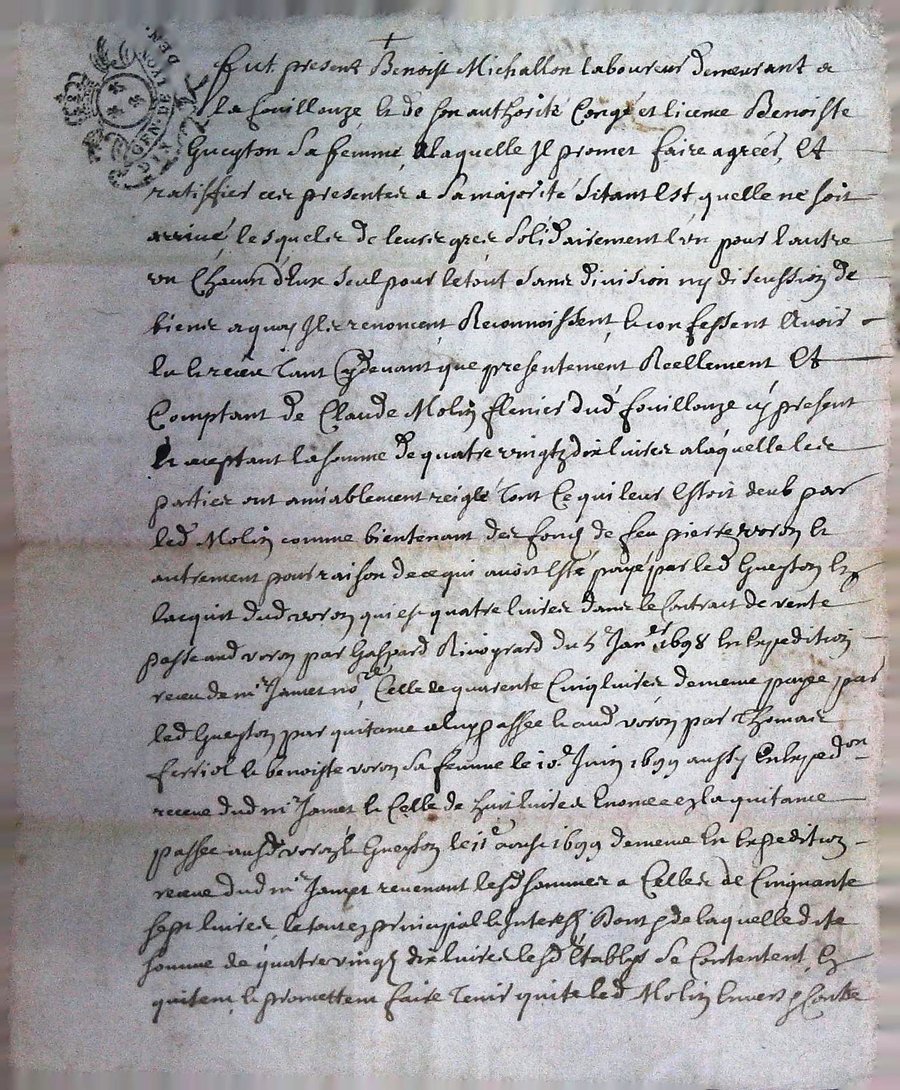 GEN. DE LYON
fut present Benoist Michallon laboureur demeurant a
la fouillouze & de son authorité Congé et licence Benoiste
Gueyton sa femme, a laquelle Jl promet faire agreér, Et
ratiffier ces presentes a sa majorité sitant Est quelle ne soit
arrivé lesquels de leurs grés solidairement lvn pour lautre
vn Chacun deux seul pour letout sans division ny discussion de
biens aquoy Jls renoncent Reconnoissent & confessent Avoir
Eu & receu Tant Cydevant que presentement Reellement Et
Comptant de Claude Molin dud fouillouze cy present
& aceptant la somme de quatre vingtz dix livres alaquelle les
parties ont amiablement reiglé Tout Ce qui leur Estoit deub par
led Molin comme bientenant des fondz de feu pierre voron &
autrement pour raison dece qui avoit Esté payé par led Gueyton En
lacquit dud voron qui est quatre livres dans le Contrat de vente
passé aud voron par Gaspard du 5e Janer 1698 En Expedition
receu de mr Jamet nore Celle de quarente Cinq livres dememe payée par
led Gueyton par quitance aluy passée & aud voron par Thomas
ferriol & benoiste voron sa femme le 10e Juin 1699 aussy En expedon
receue dud mr Jamet & Celle de huit livres Enoncee Ez la quitance
passée ausd voron & Gueyton le 11e 1699 dememe En Expedition
receue dud mr Jamet revenant lesd sommes a Celles de Cinquante
sept livres le tout en principal & Interestz Dont & de laquelle dite
somme de quatre vingtz dix livres lesd Establys se Contentent En
quitent & promettent faire Tenir quite led Molin Envers & Contre